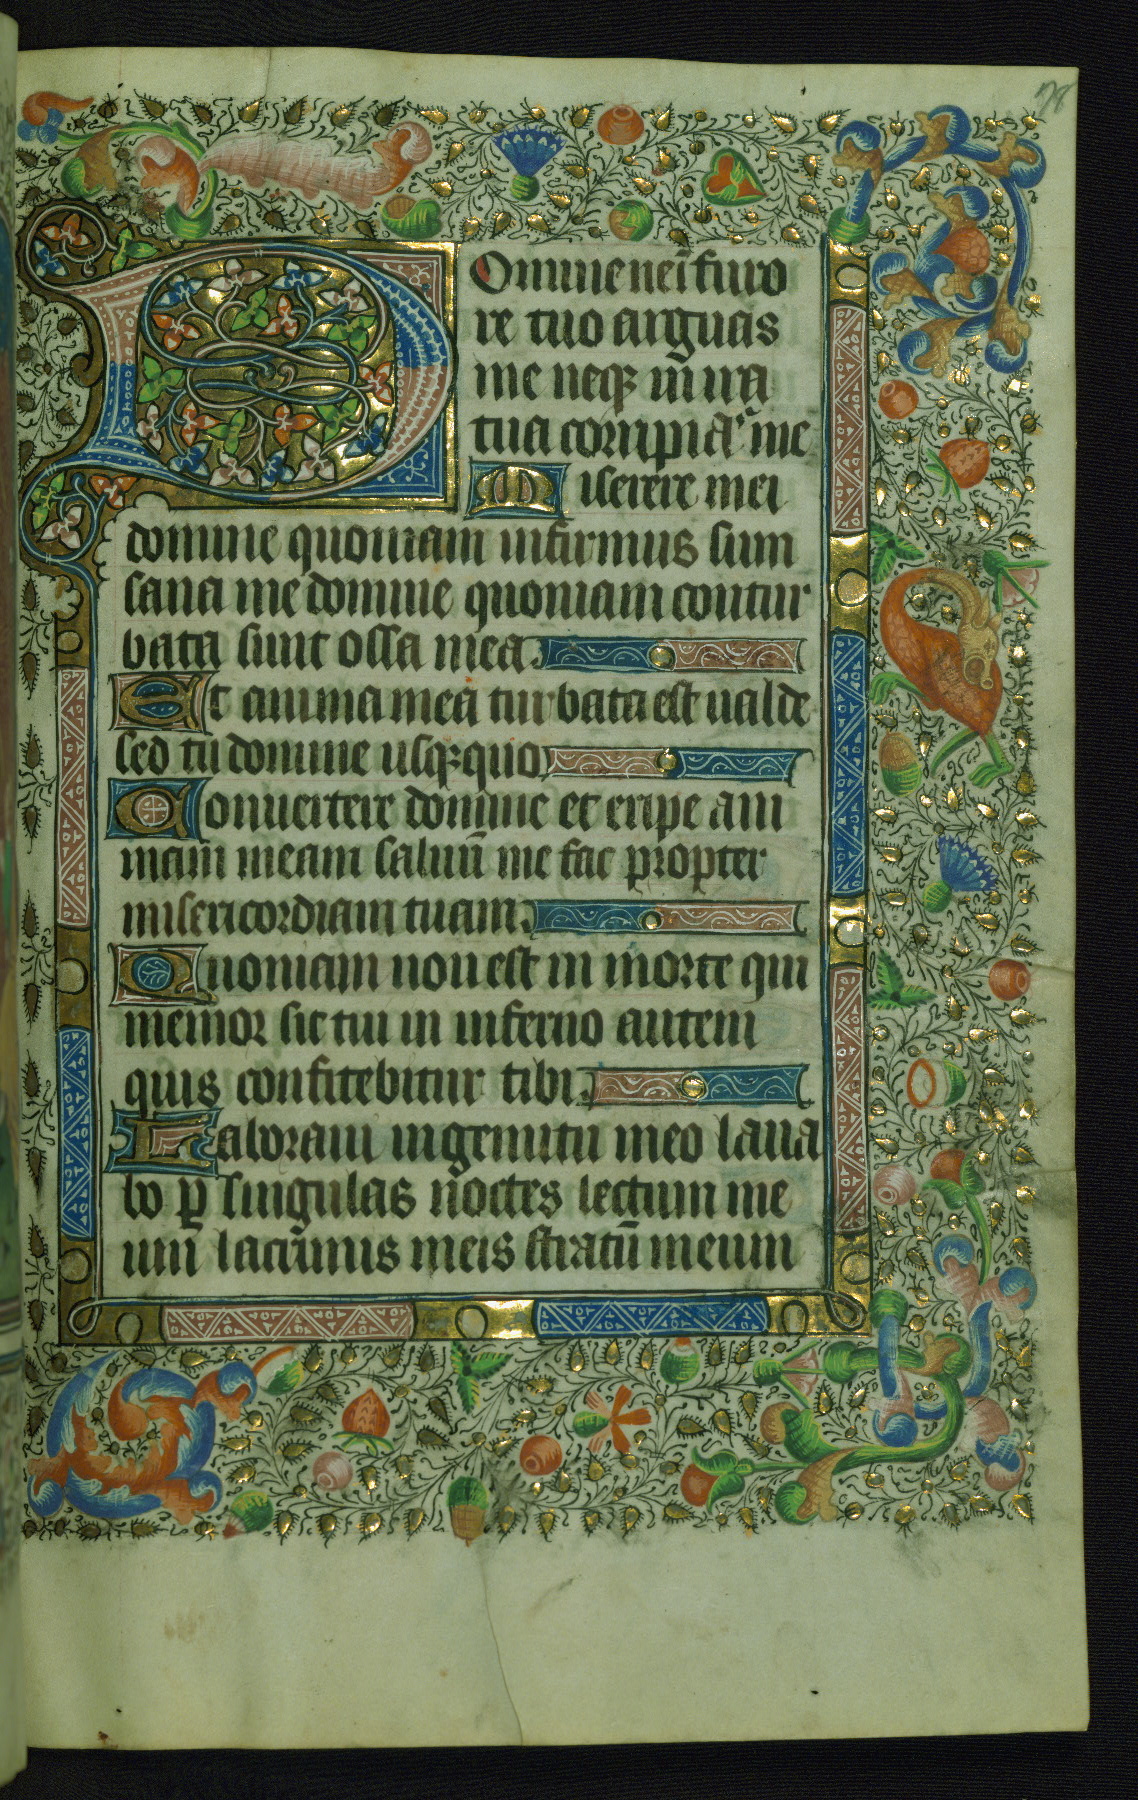 78
Domine ne ĩ furo
re tuo arguas
me neqꝫ in ira
tua corripias me
Miserere mei
domine quoniam infirmus sum
sana me domine quoniam contur
bata sunt ossa mea.
Et anima mea turbata est ualde
sed tu domine usqꝫquo
Conuertere domine et eripe ani
mam meam saluũ me fac propter
misericordiam tuam.
Quoniam non est in morte qui
memor sit tui in inferno autem
quis confitebitur tibi.
Laboraui in gemitu meo laua
bo ꝑ singulas noctes lectum me
um lacrimis meis stratũ meum